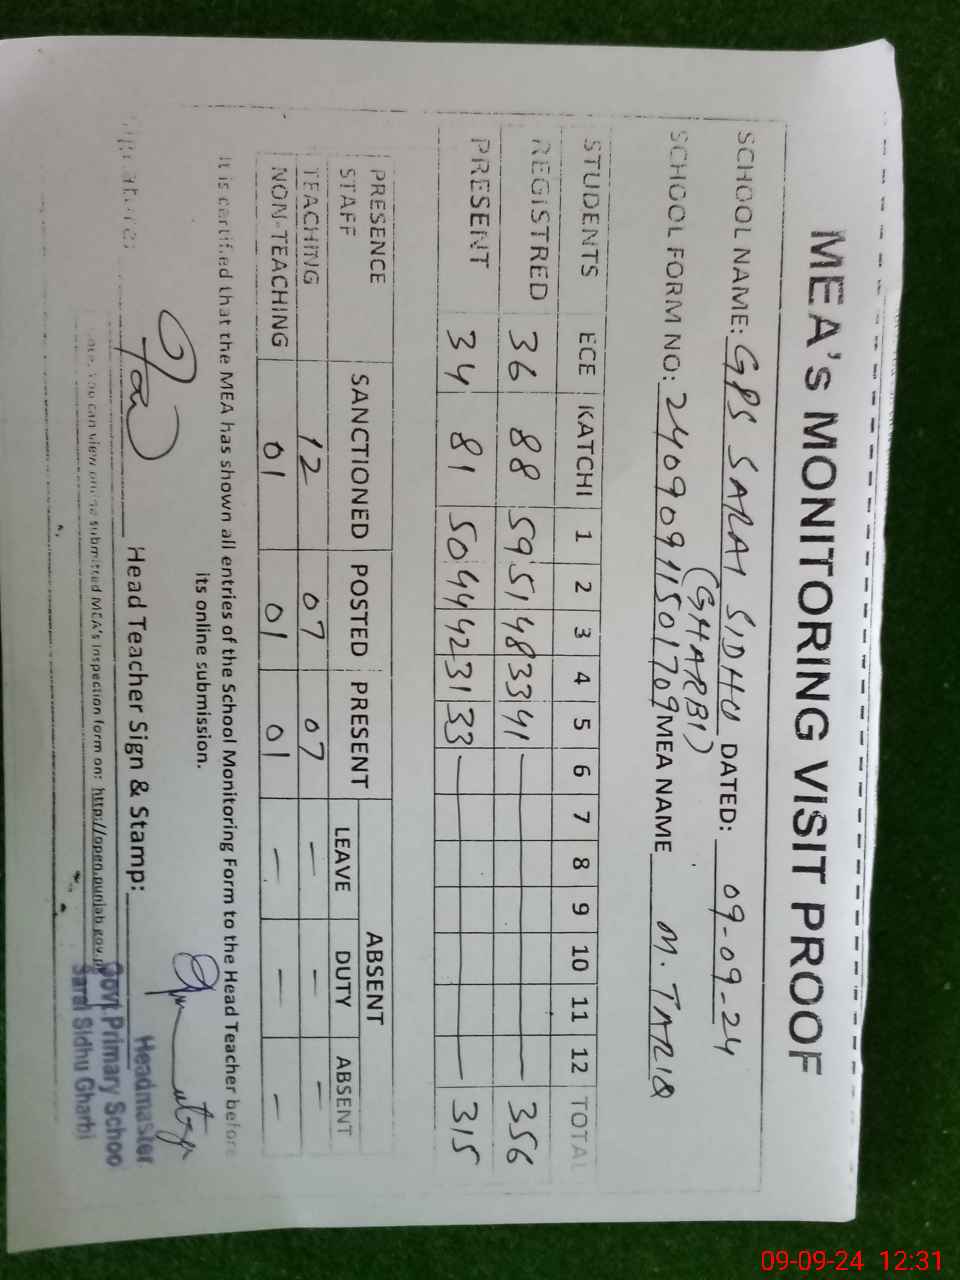 MEA's MONITORING VISIT PROOF
SCHOOL NAME: GPS SARAI SIDHU DATED: 09-09-24
(GHARBI)
SCHOOL FORM NO: 2409091501709 MEA NAME M. TARIQ
STUDENTS ECE KATCHI 1 2 3 4 5 6 7 8 9 10 11 12 TOTAL
REGISTRED 36 88 59 51 48 33 41 — 356
PRESENT 34 81 50 44 42 31 33 — 315
PRESENCE SANCTIONED POSTED PRESENT ABSENT
STAFF LEAVE DUTY ABSENT
TEACHING 12 07 07 — — —
NON-TEACHING 01 01 01 — — —
It is certified that the MEA has shown all entries of the School Monitoring Form to the Head Teacher before
its online submission.
Head Teacher Sign & Stamp:
Headmaster
Govt Primary Schoo
Sarai Sidhu Gharbi
You can view online submitted MEA's Inspection form on: http://open.punjab.gov.p
09-09-24 12:31